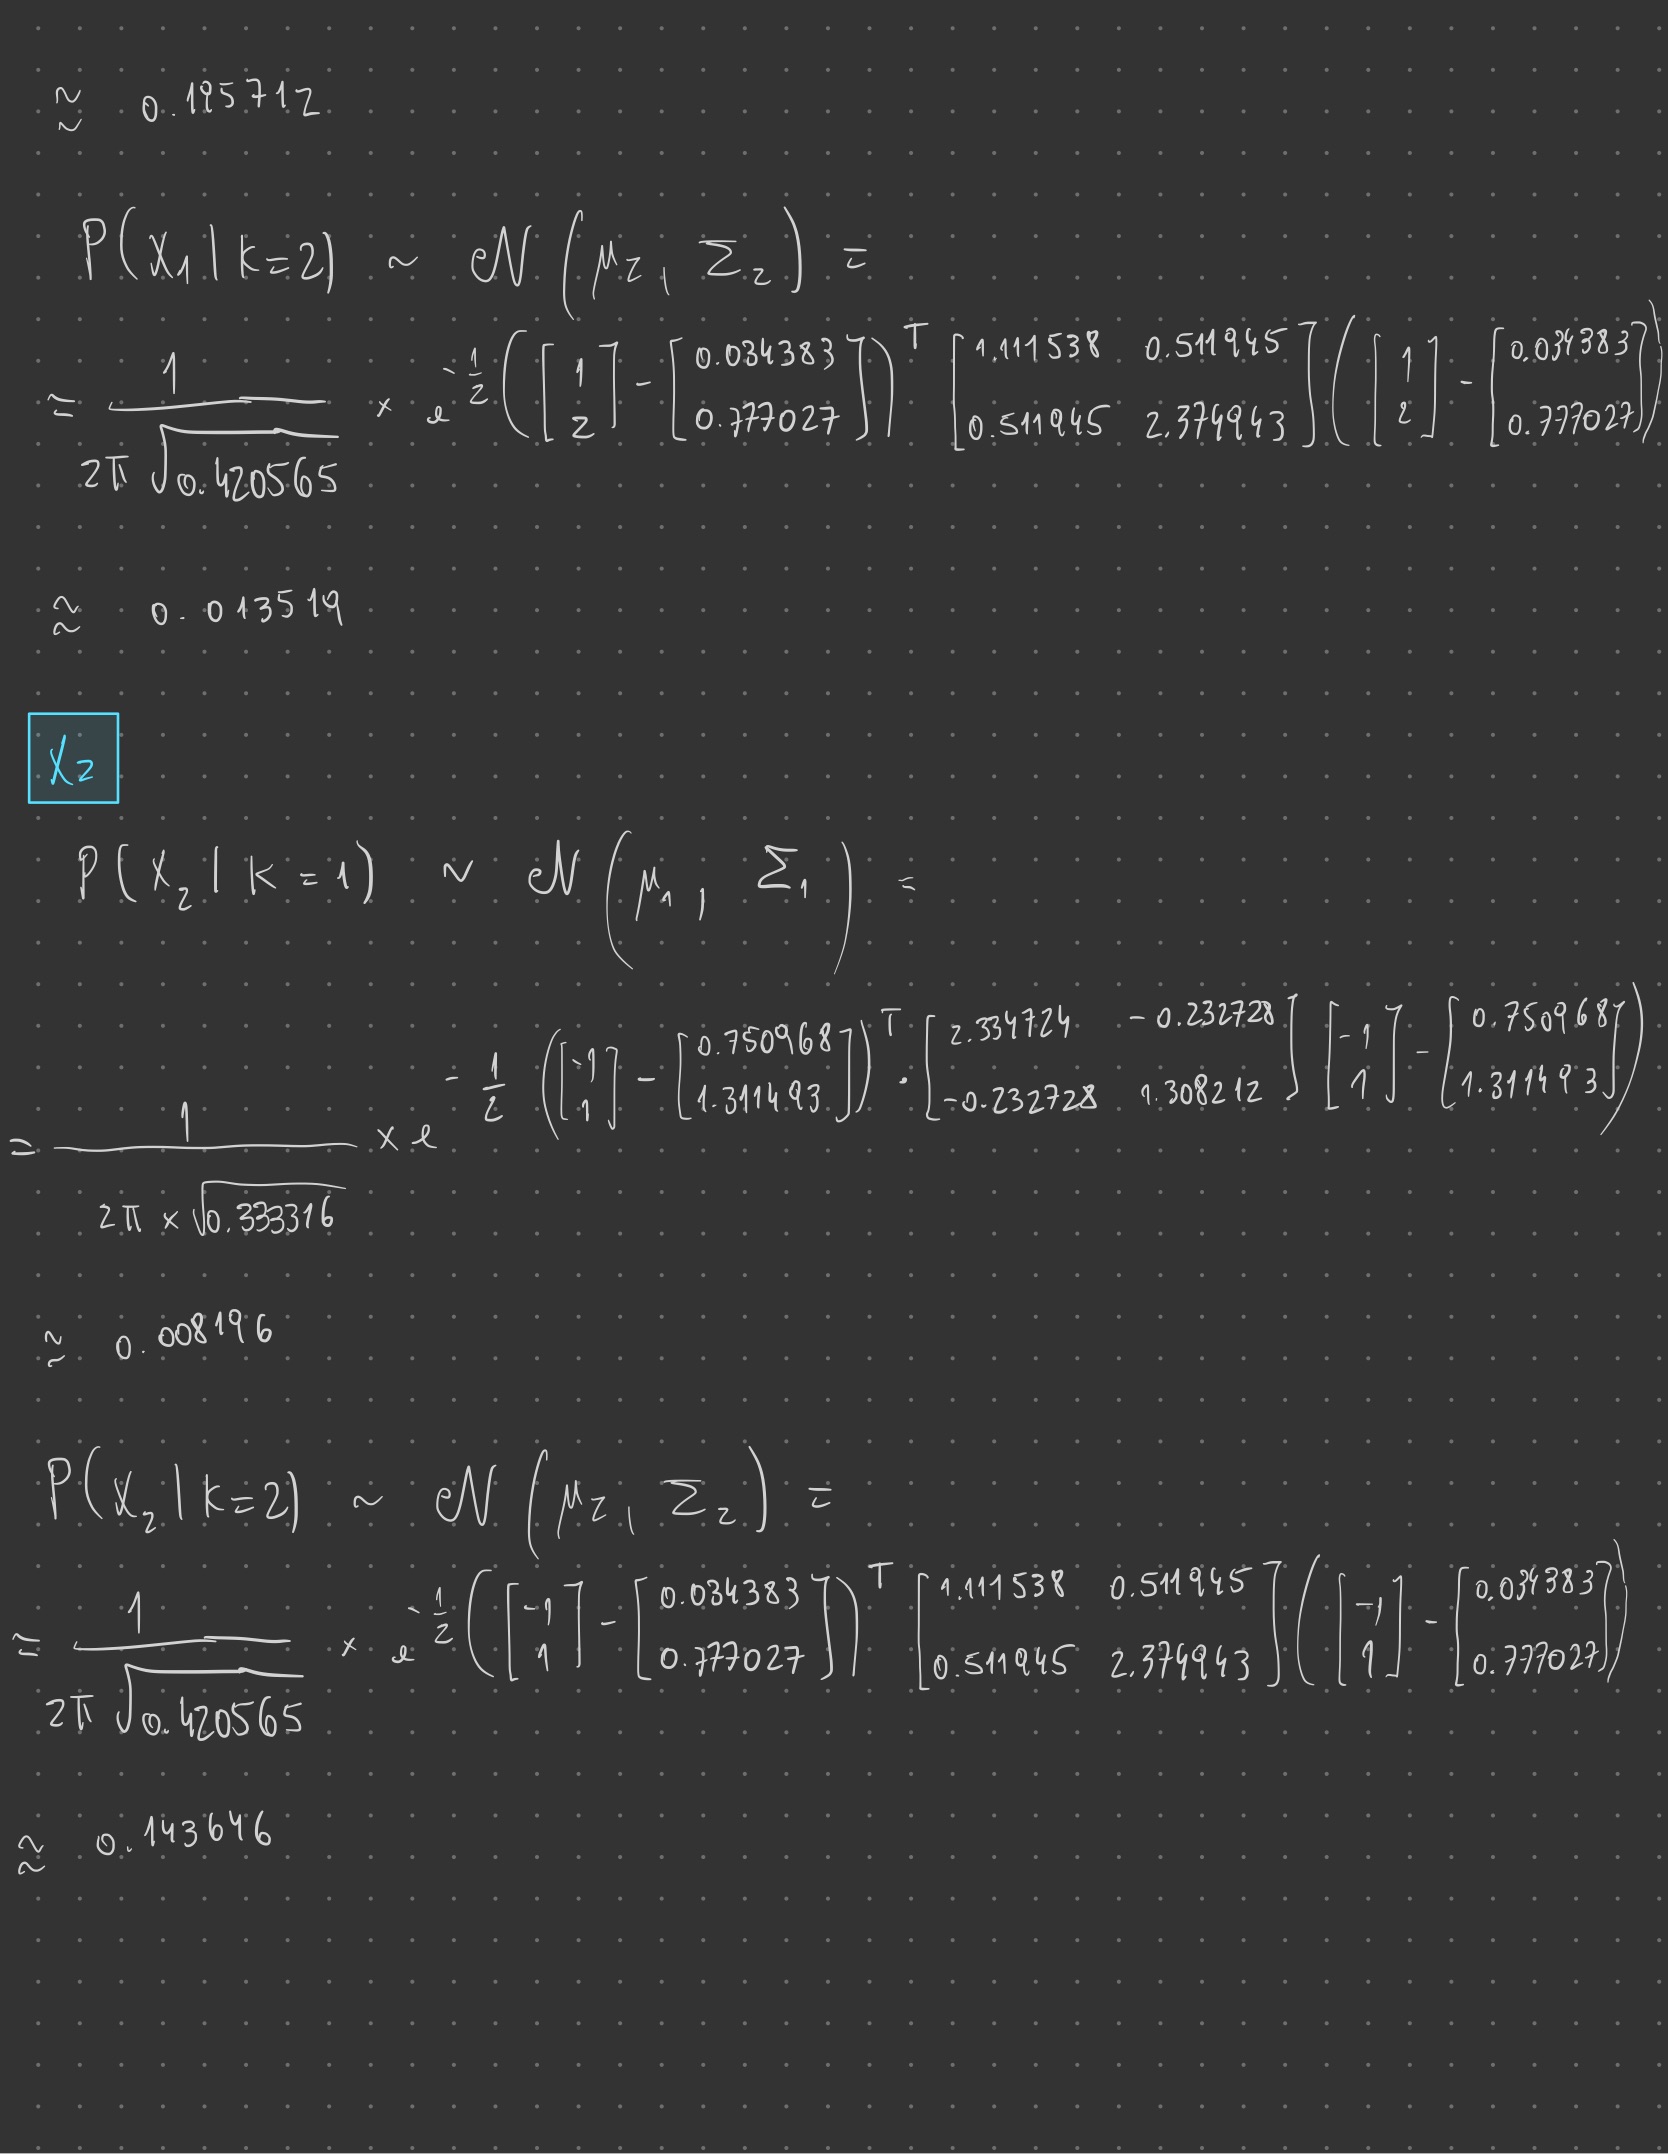 ≅ 0.195712
P(X₁ | k=2) ~ N(μ₂, Σ₂) =
= 1 / (2π √0.420565) × e^(-1/2 ([1; 2] - [0.034383; 0.777027])^T [1.111538 0.511945; 0.511945 2.374943] ([1; 2] - [0.034383; 0.777027]))
≅ 0.013519
X₂
P(X₂ | k=1) ~ N(μ₁, Σ₁) =
= 1 / (2π × √0.333316) × e^(-1/2 ([-1; 1] - [0.750968; 1.311493])^T · [2.334724 -0.232728; -0.232728 1.308212] [-1; 1] - [0.750968; 1.311493])
≅ 0.008196
P(X₂ | k=2) ~ N(μ₂, Σ₂) =
= 1 / (2π √0.420565) × e^(-1/2 ([-1; 1] - [0.034383; 0.777027])^T [1.111538 0.511945; 0.511945 2.374943] ([-1; 1] - [0.034383; 0.777027]))
≅ 0.143646